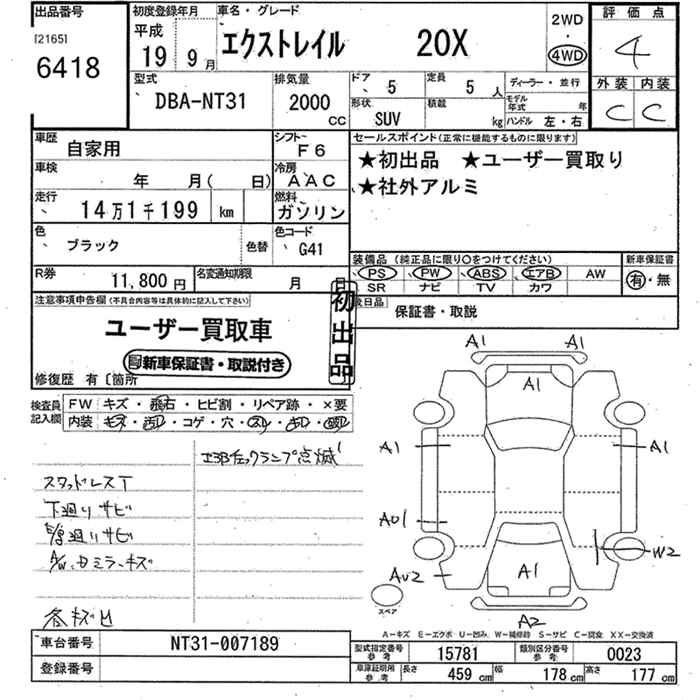 出品番号
[2165]
6418
初度登録年月
平成
19 9月
車名・グレード
エクストレイル 20X
2WD
・
4WD
評価点
4
型式
DBA-NT31
排気量
2000
CC
ドア 5
定員 5 人
ディーラー・並行
モデル年式 年
形状 SUV
積載 kg
ハンドル 左・右
外装 内装
C C
車歴 自家用
シフト F6
車検 年 月( 日)
冷房 AAC
走行 14万1千199 km
燃料 ガソリン
色 ブラック 色替
色コード G41
R券 11,800円
名変通知期限 月 日
セールスポイント(正常に機能するものに限ります)
★初出品 ★ユーザー買取り
★社外アルミ
装備品(純正品に限り○をつけてください)
新車保証書
PS PW ABS エアB AW
有・無
SR ナビ TV カワ
保証書・取説
注意事項申告欄(不具合内容等は具体的に記入して下さい)
ユーザー買取車
新車保証書・取説付き
初出品
修復歴 有〔箇所
検査員記入欄
FW キズ・飛石・ヒビ割・リペア跡・×要
内装 キズ・汚レ・コゲ・穴・スレ・
スタッドレスT
下廻りサビ
A/W、Dミラーキズ
各キズ凹
A1 A1
A1
A1 A1
W2
AU2
A1
A2
スペア
A-キズ E-エクボ U-凹み W-補修跡 S-サビ C-腐食 XX-交換済
車台番号 NT31-007189
登録番号
型式指定番号 参考 15781
類別区分番号 参考 0023
車庫証明用 参考 長さ 459 cm 幅 178 cm 高さ 177 cm